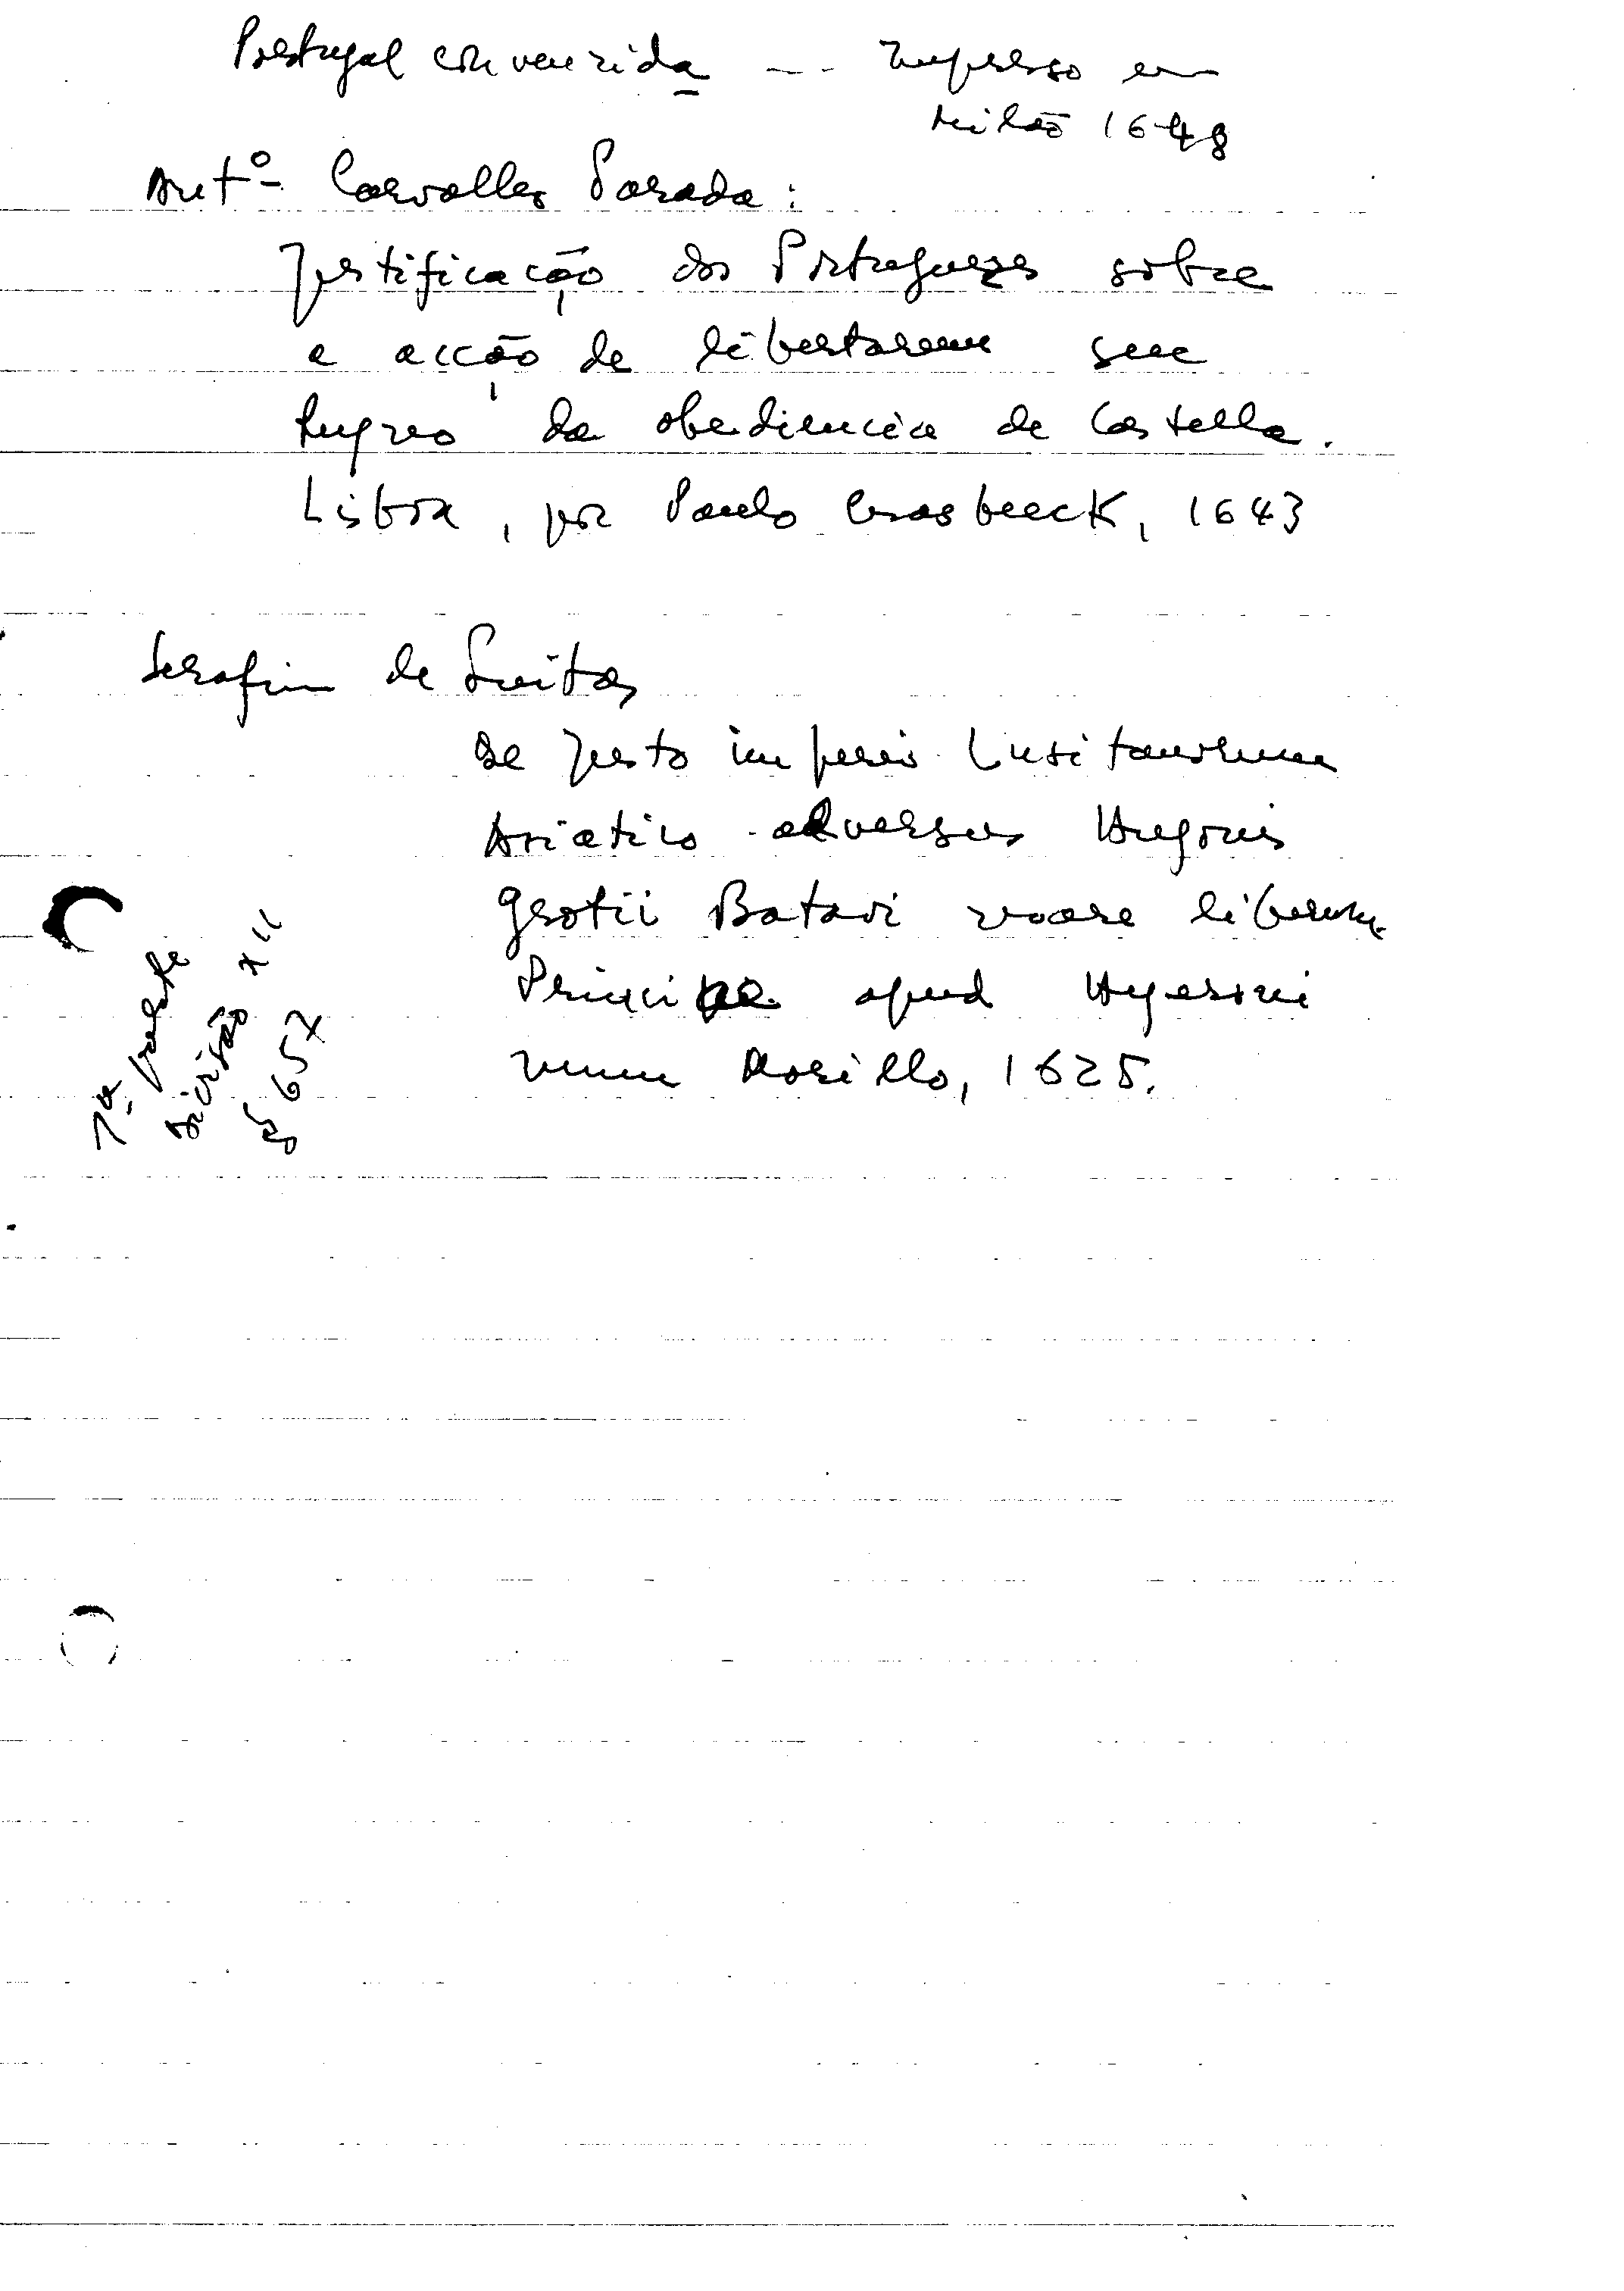 Portugal convenzida -- Impresso em
Milão 1648
Antº Carvalho Parada:
Justificação dos Portugueses sobre
a acção de libertarem seu
Reyno da obediencia de Castella.
Lisboa, por Paulo Craesbeeck, 1643
Serafim de Freitas
De Justo imperio Lusitanorum
Asiatico adversus Hugonis
Grotii Batavi mare liberum.
apud Hyeroni
mum Morillo, 1625.
1ª parte
divisão
§ 657